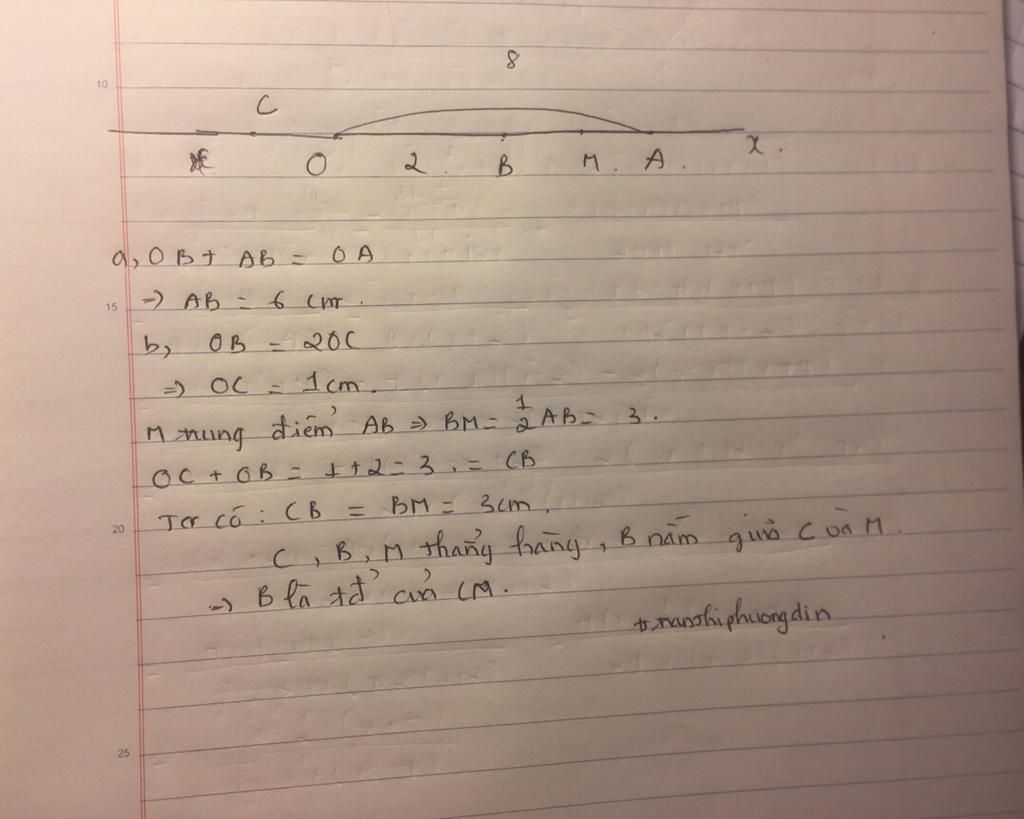 10
8
C
O 2 B M. A. x.
a, OB + AB = OA
15
-) AB = 6 cm.
b, OB = 2OC
=> OC = 1cm.
M trung điểm AB => BM = 1/2 AB = 3.
OC + OB = 1+2 = 3. = CB
20
Ta có: CB = BM = 3cm.
C, B, M thẳng hàng, B nằm giữa C và M.
-) B là tđ của CM.
tranthiphuongdin
25